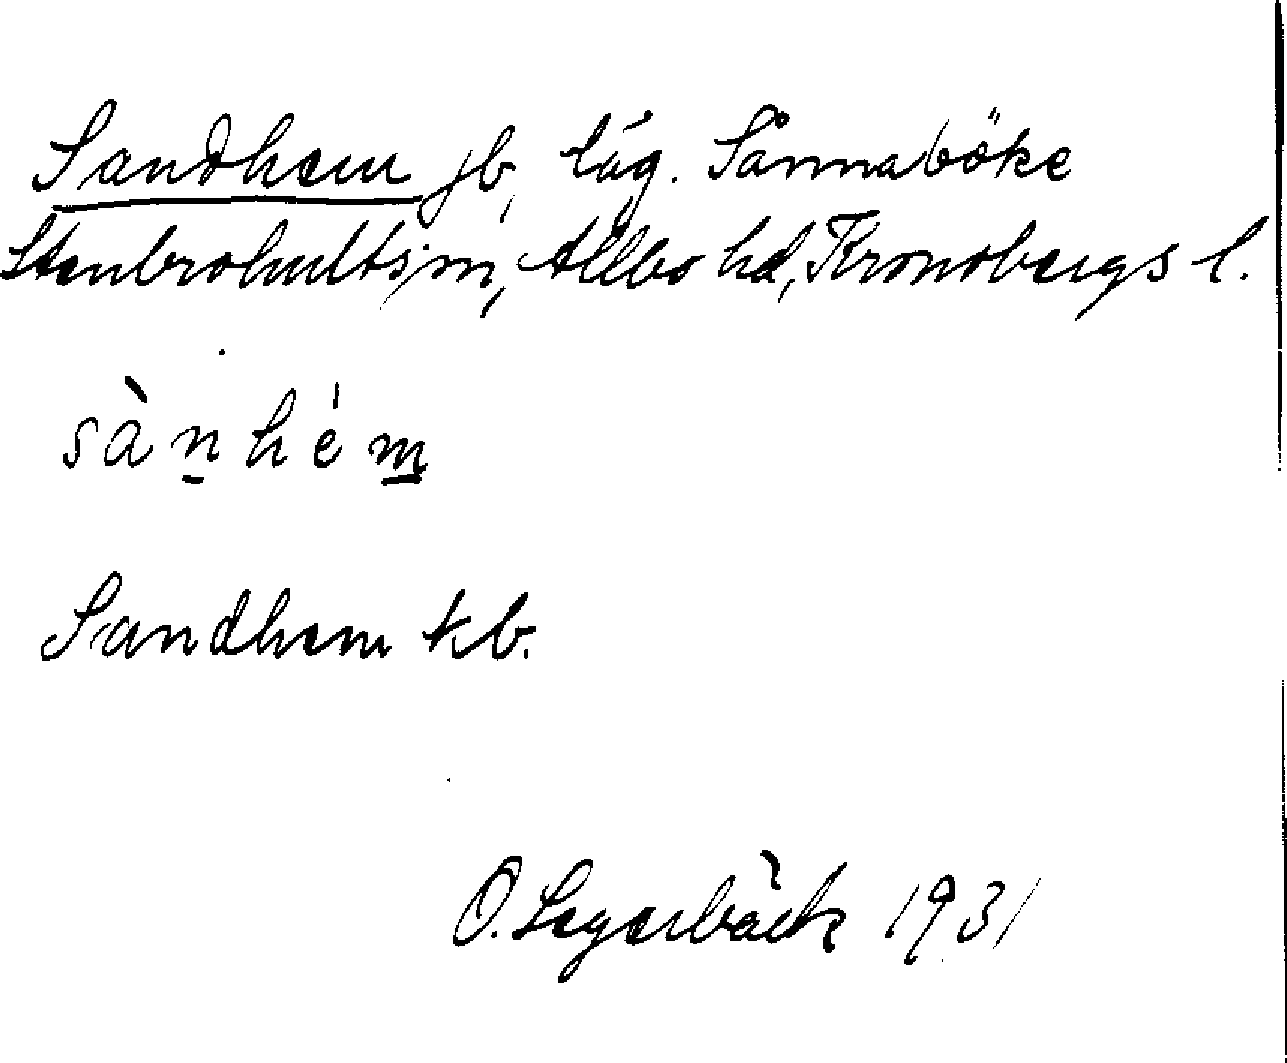 Sandhem jb, läg. Sånnaböke
Stenbrohults sn, Allbo hd, Kronobergs l.
sàn̲hém̲
Sandhem kb.
O. Segerbäck 1931